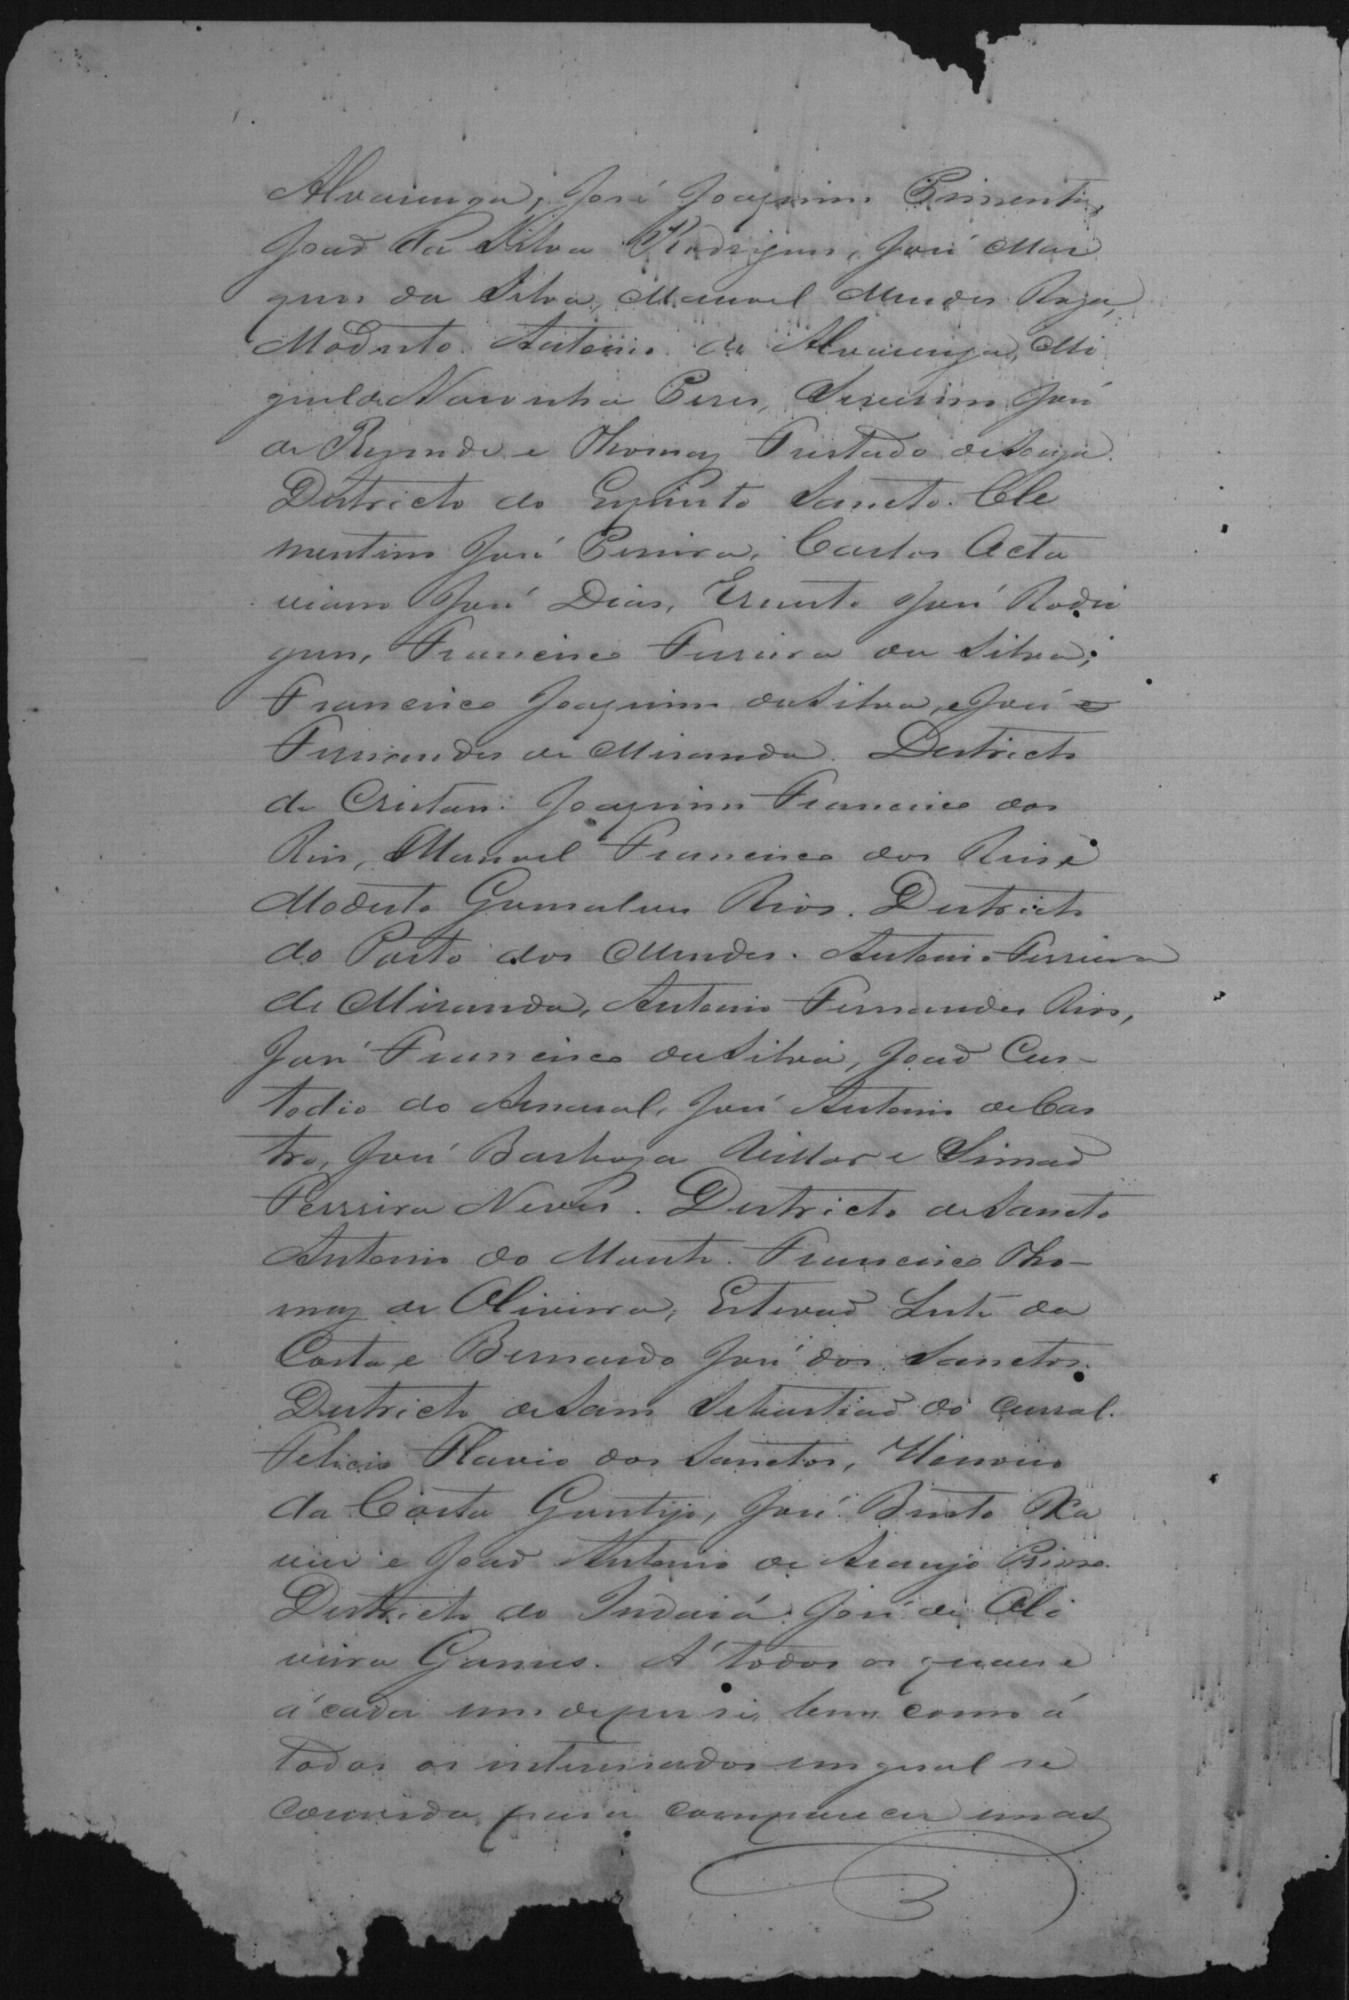 Alvarenga, José Joaquim Pimenta,
João da Silva Rodrigues, José Mar
ques da Silva, Manoel Mendes
Modesto Antonio de Alvarenga, Mi
guel de Noronha Peres, Severino José
de Rezende e Thomaz Furtado de Souza.
Districto do Espirito Sancto. Cle
mentino José Pereira, Carlos Octa
viano José Dias, Ernesto José Rodri
gues, Francisco Ferreira da Silva,
Francisco Joaquim da Silva, e José e
Fernandes de Miranda. Districto
de Cristaes. Joaquim Francisco dos
Reis, Manoel Francisco dos Reis e
Modesto Gonsalves Rios. Districto
do Porto dos Mendes. Antonio Ferreira
de Miranda, Antonio Fernandes Rios,
José Francisco da Silva, João Cus-
todio do Amaral, José Antonio de Cas
tro, José Barboza e Simão
Ferreira Neves. Districto de Sancto
Antonio do Monte. Francisco Tho-
maz de Oliveira, Estevão Leite da
Costa, e Bernardo José dos Sanctos.
Districto de Sam Sebastião do Curral.
Felicio Flavio dos Sanctos, Honorio
da Costa Gontijo, José Bento Xa
vier e João Antonio de Araujo
Districto do Indaiá. José de Oli
veira Gomes. A' todos os quaes e
á cada um de per si, bem como á
todos os interessados em geral se
convida para comparecer